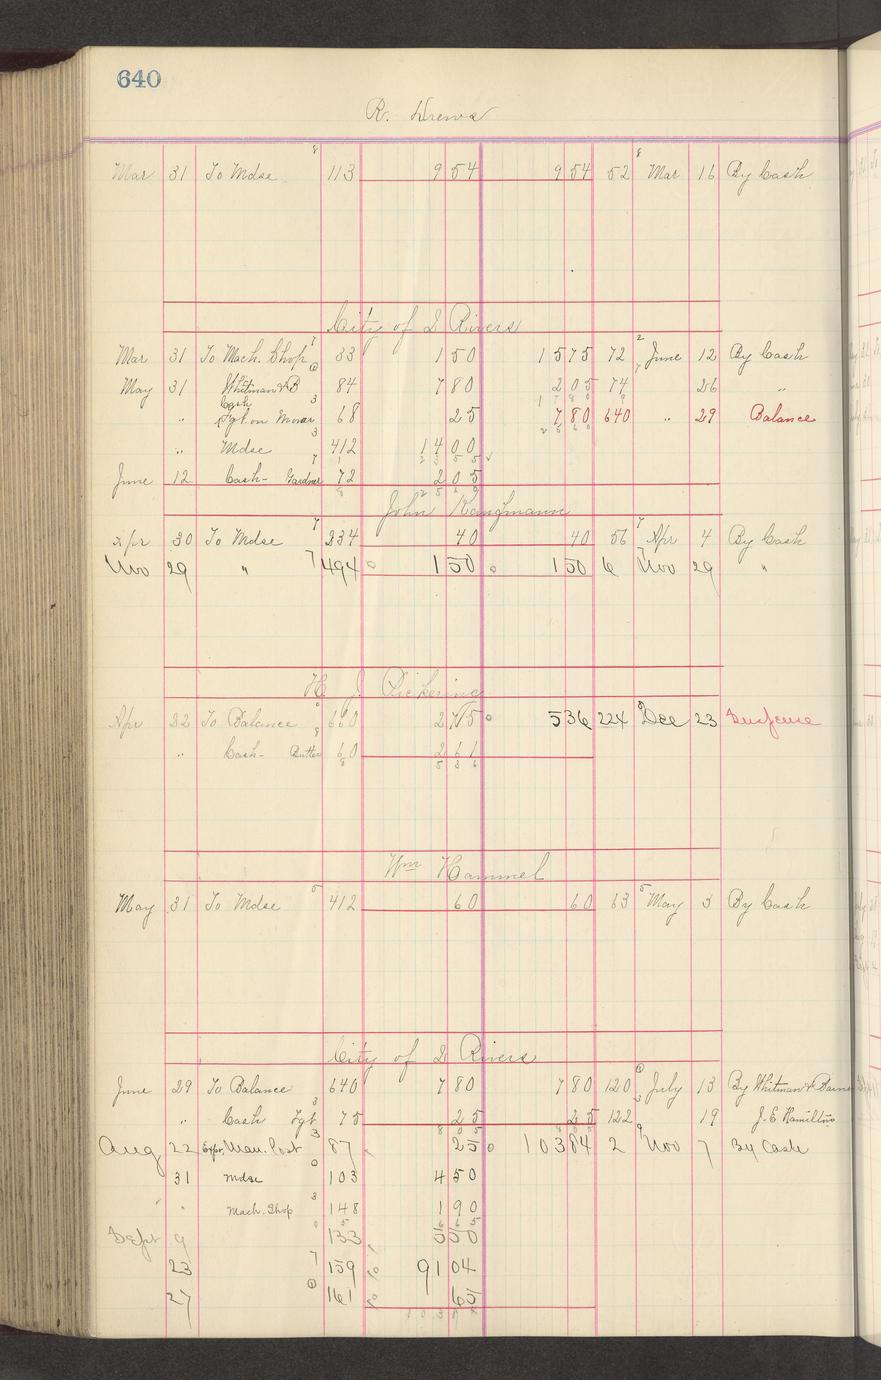 640
R. Drews
Mar 31 To Mdse 8 113 9 54 9 54 52 8 Mar 16 By Cash
City of 2 Rivers
Mar 31 To Mach. Shop 1 33 1 50 15 75 72 2 June 12 By Cash
May 31 Whitman & B 84 7 80 2 05 74 7 26 "
1 7 8 0
" Cash Fgt. on Mower 3 68 25 7 80 640 " 29 Balance
2 5 6 0
" Mdse 3 412 14 00
2 3 5 5
June 12 Cash - Gardner 7 72 2 05
2 5 6 0
John Kaufmann
Apr 30 To Mdse 7 334 40 40 56 7 Apr 4 By Cash
Nov 29 " 7 494 1 50 1 50 6 7 Nov 29 "
H J Pickering
Apr 22 To Balance 660 2 75 5 36 224 Dec 23 Suspense
" Cash - Butter 8 60 2 61
5 3 6
Wm Hammel
May 31 To Mdse 5 412 60 60 63 5 May 3 By Cash
City of 2 Rivers
June 29 To Balance 640 7 80 7 80 120 July 13 By Whitman & Barnes
" Cash Fgt 3 75 25 25 122 3 19 J. E. Hamilton
8 0 5
Aug 22 Exp. Man. Post 3 87 25 103 84 2 9 Nov 7 By Cash
31 Mdse 0 103 4 50
" Mach. Shop 3 148 1 90
6 6 5
Sept 9 133 5 50
23 7 159 91 04
27 161 65